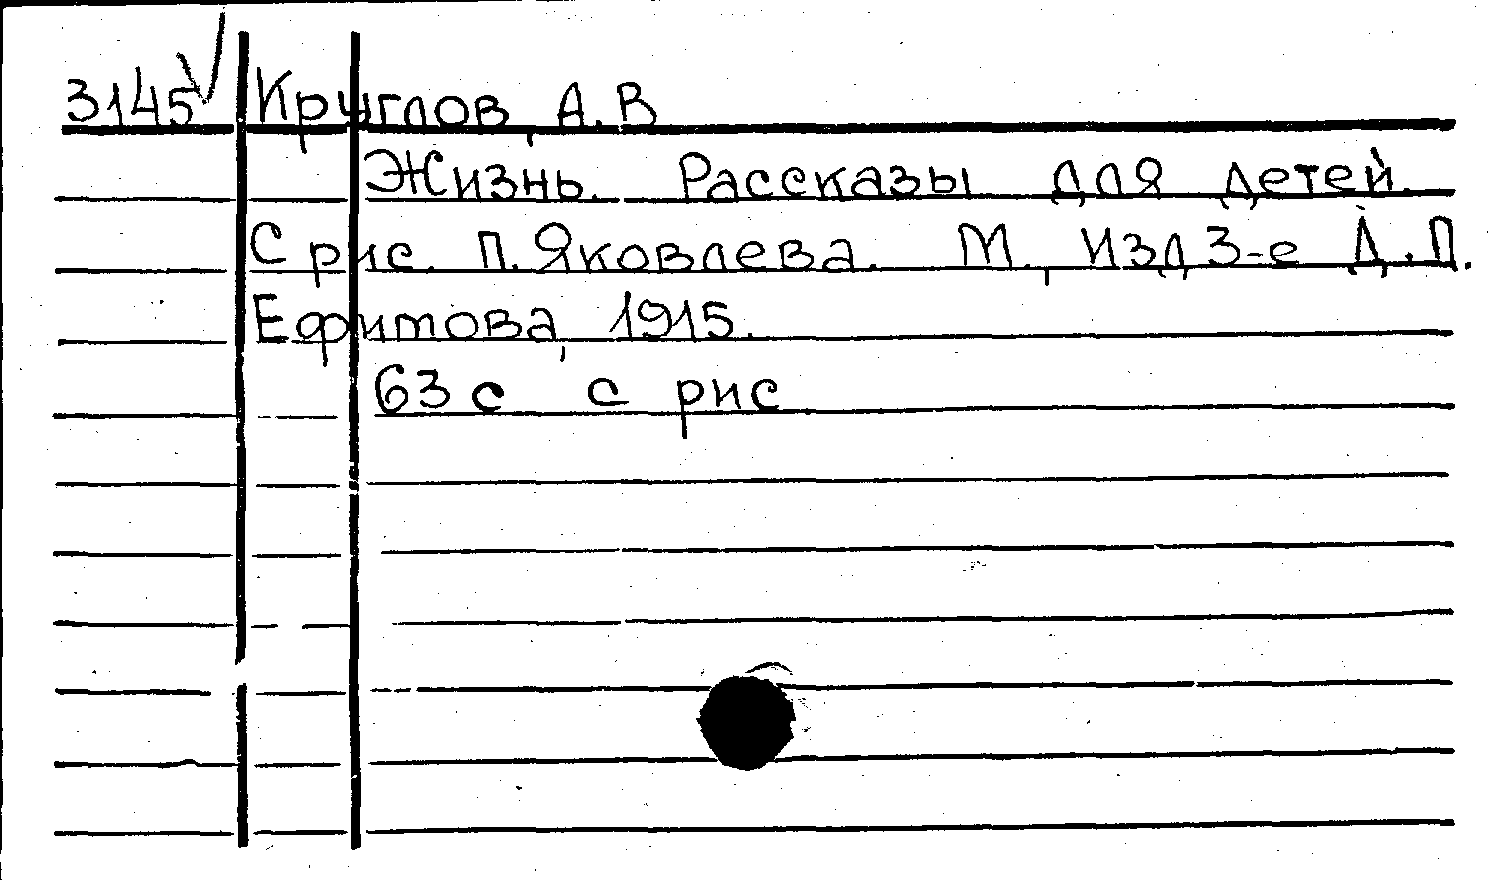 3145 Круглов, А.В
Жизнь. Рассказы для детей.
С рис. П. Яковлева. М., изд 3-е Д.П.
Ефимова, 1915.
63 с с рис